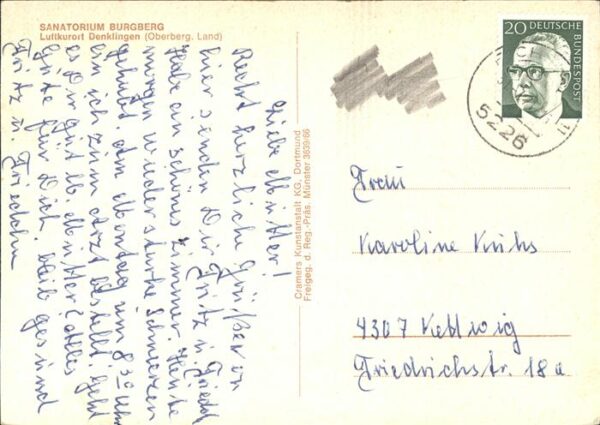 SANATORIUM BURGBERG
Luftkurort Denklingen (Oberberg. Land)
Liebe Mutter!
Recht herzliche Grüße von
hier senden Dir Fritz u. Friedch
Habe ein schönes Zimmer. Heute
morgen wieder starke Schmerzen
gehabt. Am Montag um 8³⁰ Uhr
bin ich zum Arzt bestellt. Geht
es Dir gut lb. Mutter? Alles
Gute für Dich bleib gesund
Fritz u. Friedchen
Cramers Kunstanstalt KG, Dortmund
Freigeg. d. Reg.-Präs. Münster 3639/66
20 DEUTSCHE
BUNDESPOST
5226
Frau
Karoline
4307 Kettwig
Friedrichstr. 18a